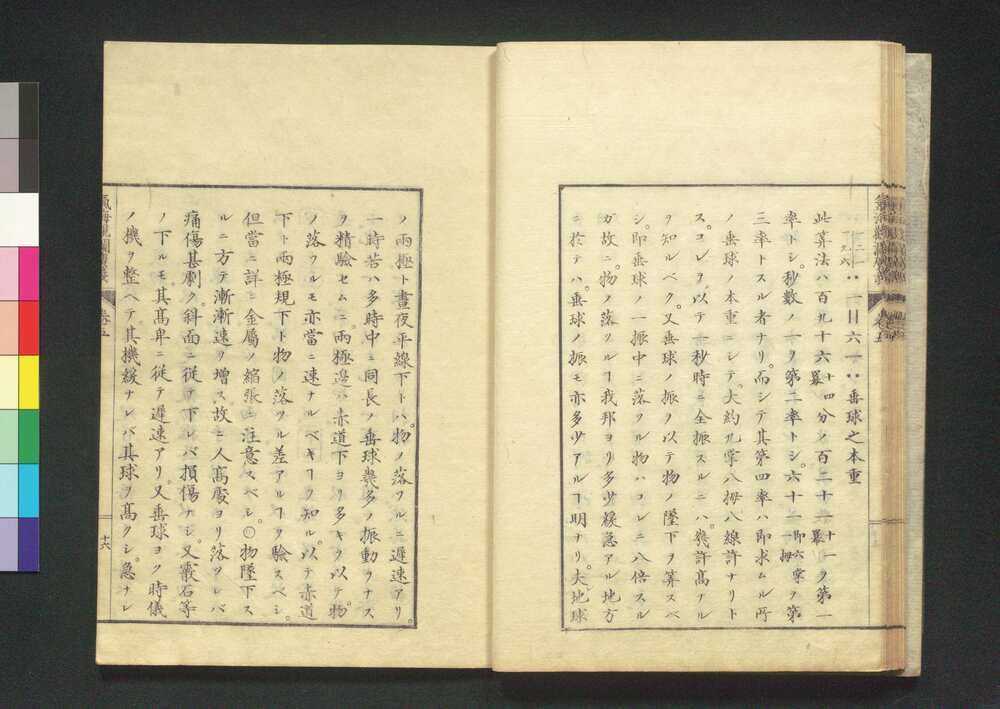 一二一
六　‥一日六一‥垂球之本重
此算法ハ百九十六十四冪分ノ百二十一十一冪ヲ第一
率トシ。秒数ノ一ヲ第二率トシ。六十一即六掌一拇ヲ第
三率トスル者ナリ。而シテ其第四率ハ即求ムル所
ノ垂球ノ本重ニシテ。大約九掌八拇八線許ナリト
ス。コレヲ以テ一秒時ニ全振スルニハ。幾許高ナル
ヲ知ルベク。又垂球ノ振ノ以テ物ノ墜下ヲ算スベ
シ。即垂球ノ一振中ニ落ツル物ハコレニ八倍スル
ガ故ニ。物ノ落ツルヿ我邦ヨリ多少緩急アル地方
ニ於テハ。垂球ノ振モ亦多少アルヿ明ナリ。夫地球
ノ兩極ト晝夜平線下トハ。物ノ落ツルニ遲速アリ。
一時若ハ多時中ニ同長ノ垂球幾多ノ振動ヲナス
ヲ精驗セムニ。兩極邊ハ赤道下ヨリ多キヲ以テ。物
ノ落ツルモ亦當ニ速ナルベキヿヲ知ル。以テ赤道
下ト兩極規下ト物ノ落ツル差アルヿヲ驗スベシ。
但當ニ詳ニ金屬ノ縮張ニ注意スベシ。○物墜下ス
ルニ方テ漸漸速ヲ增ス。故ニ人高處ヨリ落ツレバ
痛傷甚劇ク。斜面ニ從テ下レバ損傷ナシ。又霰石等
ノ下ルモ。其高卑ニ從テ遲速アリ。又垂球ヲク時儀
ノ機ヲ整ヘテ其機緩ナレバ其球ヲ高クシ。急ナレ
氣海觀瀾廣義
卷五
十六